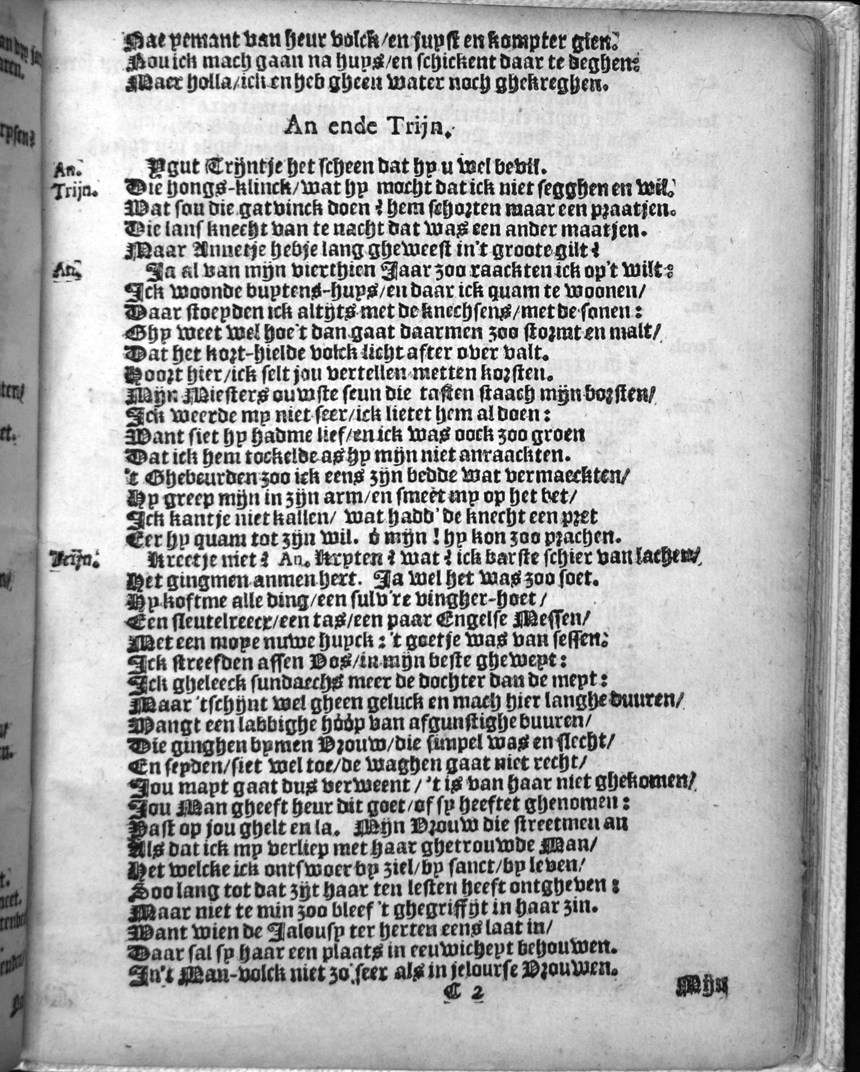 Nae yemant van heur volck/en juyst en kompter gien.
Nou ick mach gaan na huys/en schickent daar te deghen:
Maer holla/ick en heb gheen water noch ghekreghen.
An ende Trijn.
An. Ygut Trijntje het scheen dat hy u wel bevil.
Trijn. Die hongs-klinck/wat hy mocht dat ick niet segghen en wil.
Wat sou die gatvinck doen? hem schorten maar een praatjen.
Die lans knecht van te nacht dat was een ander maatjen.
Maar Annetje hebje lang gheweest in't groote gilt?
An. Ja al van mijn vierthien Jaar zoo raackten ick op't wilt:
Ick woonde buytens-huys/en daar ick quam te woonen/
Daar stoeyden ick altijts met de knechsens/met de sonen:
Ghy weet wel hoe't dan gaat daarmen zoo stormt en malt/
Dat het kort-hielde volck licht after over valt.
Hoort hier/ick selt jou vertellen metten korsten.
Mijn Miesters ouwste seun die tasten staach mijn borsten/
Ick weerde my niet seer/ick lietet hem al doen:
Want siet hy hadme lief/en ick was oock zoo groen
Dat ick hem tockelde as hy mijn niet anraackten.
't Ghebeurden zoo ick eens zijn bedde wat vermaeckten/
Hy greep mijn in zijn arm/en smeet my op het bet/
Ick kantje niet kallen/ wat hadd' de knecht een pret
Eer hy quam tot zijn wil. ó mijn! hy kon zoo prachen.
Trijn. Kreetje niet? An. Kryten? wat? ick barste schier van lachen/
Het gingmen anmen hert. Ja wel het was zoo soet.
Hy koftme alle ding/een sulv're vingher-hoet/
Een sleutelreecx/een tas/een paar Engelse Messen/
Met een moye nuwe huyck: 't goetje was van sessen:
Ick streefden assen Vos/in mijn beste gheweyt:
Ick gheleeck sundaechs meer de dochter dan de meyt:
Maar 'tschijnt wel gheen geluck en mach hier langhe duuren/
Wangt een labbighe hóóp van afgunstighe buuren/
Die ginghen bymen Vrouw/die simpel was en slecht/
En seyden/siet wel toe/de waghen gaat niet recht/
Jou mayt gaat dus verweent/'t is van haar niet ghekomen/
Jou Man gheeft heur dit goet/of sy heeftet ghenomen:
Past op jou ghelt en la. Mijn Vrouw die streetmen an
Als dat ick my verliep met haar ghetrouwde Man/
Het welcke ick ontswoer by ziel/by sanct/by leven/
Soo lang tot dat zijt haar ten lesten heeft ontgheven:
Maar niet te min zoo bleef 't ghegriffijt in haar zin.
Want wien de Jalousy ter herten eens laat in/
Daar sal sy haar een plaats in eeuwicheyt behouwen.
In't Man-volck niet zo seer als in jelourse Vrouwen.
C 2
Mijn